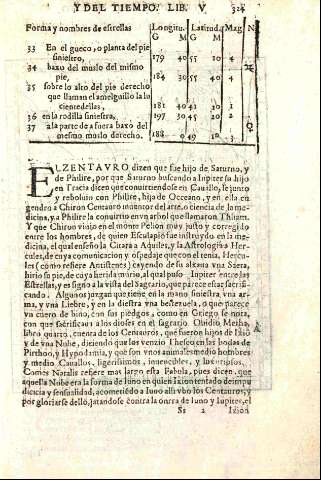 Y DEL TIEMPO. LIB. V. 324
Forma y nombres de estrellas Longitu. Latitud. Mag N
G M G M
33 En el gueco, o planta del pie
siniestro, 179 40 55 10 4
34 baxo del muslo del mismo
pie, 184 30 55 40 4
35 sobre lo alto del pie derecho
que llaman el
181 40 41 10 1
36 en la rodilla siniestra, 197 30 45 20 2
37 a la parte de a fuera baxo del
mesmo muslo derecho. 188 0 49 10 3
EL ZENTAVRO dizen que fue hijo de Saturno, y
de Philire, por que Saturno buscando a Iupiter su hijo
en Tracia dicen que conuirtiendose en Cauallo, se junto
y reboluio con Philire, hija de Occeano, y en ella en
gendro a Chiron Centauro inuentor del arte, o ciencia de la me-
dicina, y a Philire la conuirtio en vn arbol que llamaron
Y que Chiron viuio en el monte Pelion muy justo y corregido
entre los hombres, de quien Esculapio fue instruydo en la me-
dicina, el qual enseño la Citara a Aquiles, y la Astrologia a Her-
cules, de cuya comunicacion y ospedaje que con el tenia, Hercu-
les (como refiere Antistenes) cayendo de su aljaua vna Saeta,
hirio su pie, de cuya herida murio, al qual puso Iupiter entre las
Estrellas, y es signo a la vista del Sagrario, que parece estar sacrifi-
cando. Algunos juzgan que tiene en la mano siniestra vna ar-
ma, y vna Liebre, y en la diestra vna bezezuela, o que parece
vn cuero de bino, con sus piedgos, como en Griego se nota,
con que sacrificaua a los dioses en el sagrario. Ouidio Metha,
libro quarto, cuenta de los Centauros, que fueron hijos de Ixio
y de vna Nuhe, diciendo que los venzio Theseo en las bodas de
Pirthoo, y Hypodamia, y que son vnos animales medio hombres
y medio Cauallos, ligerissimos, inuencibles, y
Comes Natalis refiere mas largo esta Fabula, pues dicen, que
aquella Nube era la forma de Iuno en quien Ixion tentado de impu
dicicia y sensualidad, acometiēdo a Iuno alli vbo los Centauros, y
por gloriarse dello, jatandose contra la onrra de Iuno y Iupiter, el
Ss 2 Ixion